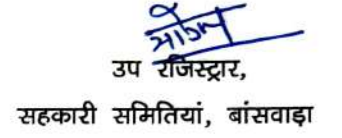 उप रजिस्ट्रार,
सहकारी समितियां, बांसवाड़ा